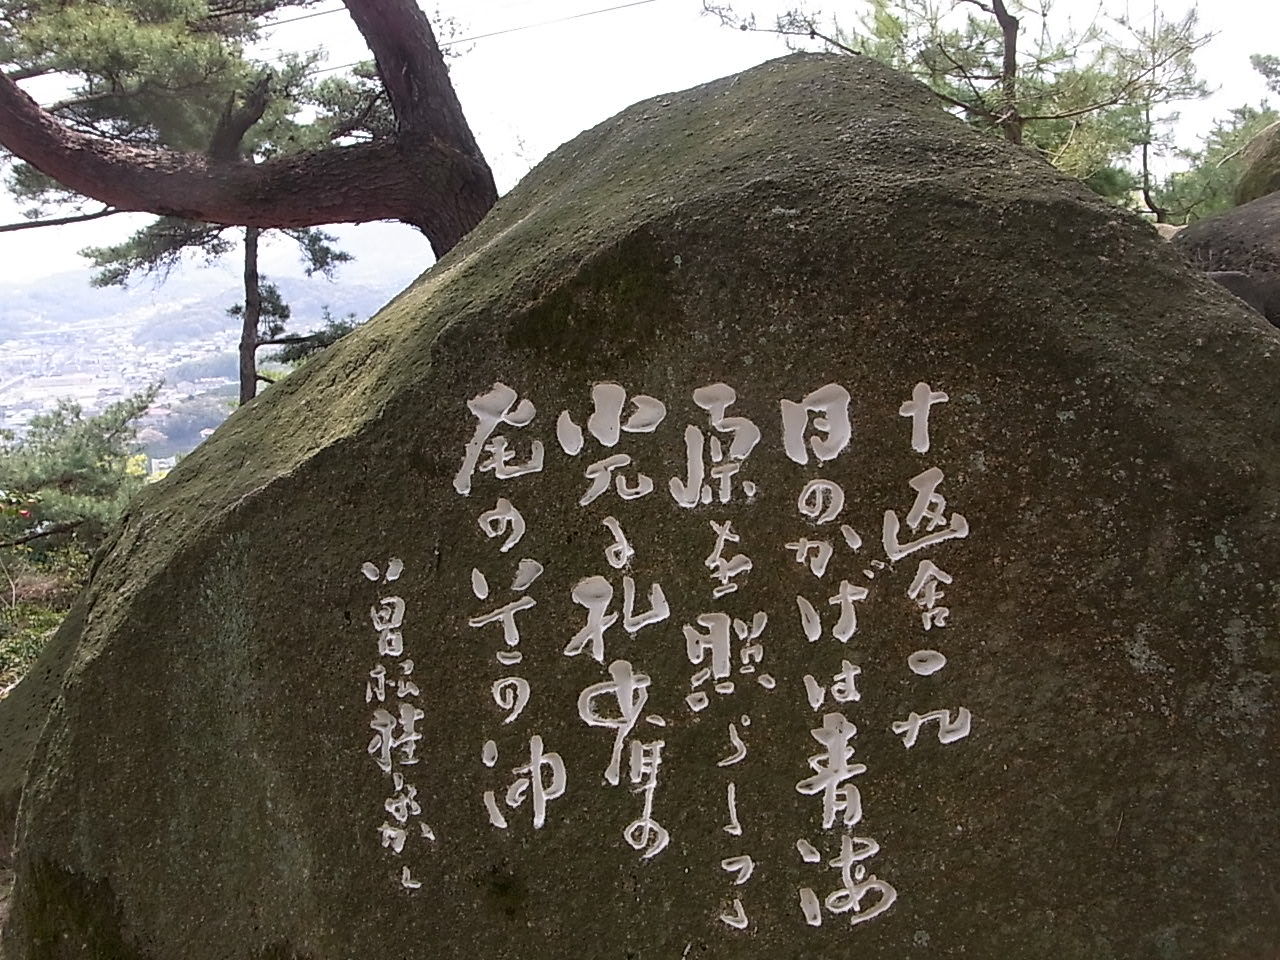 十返舎一九
日のかげは青海
原を照らしつつ
光る孔雀の
尾の道の沖